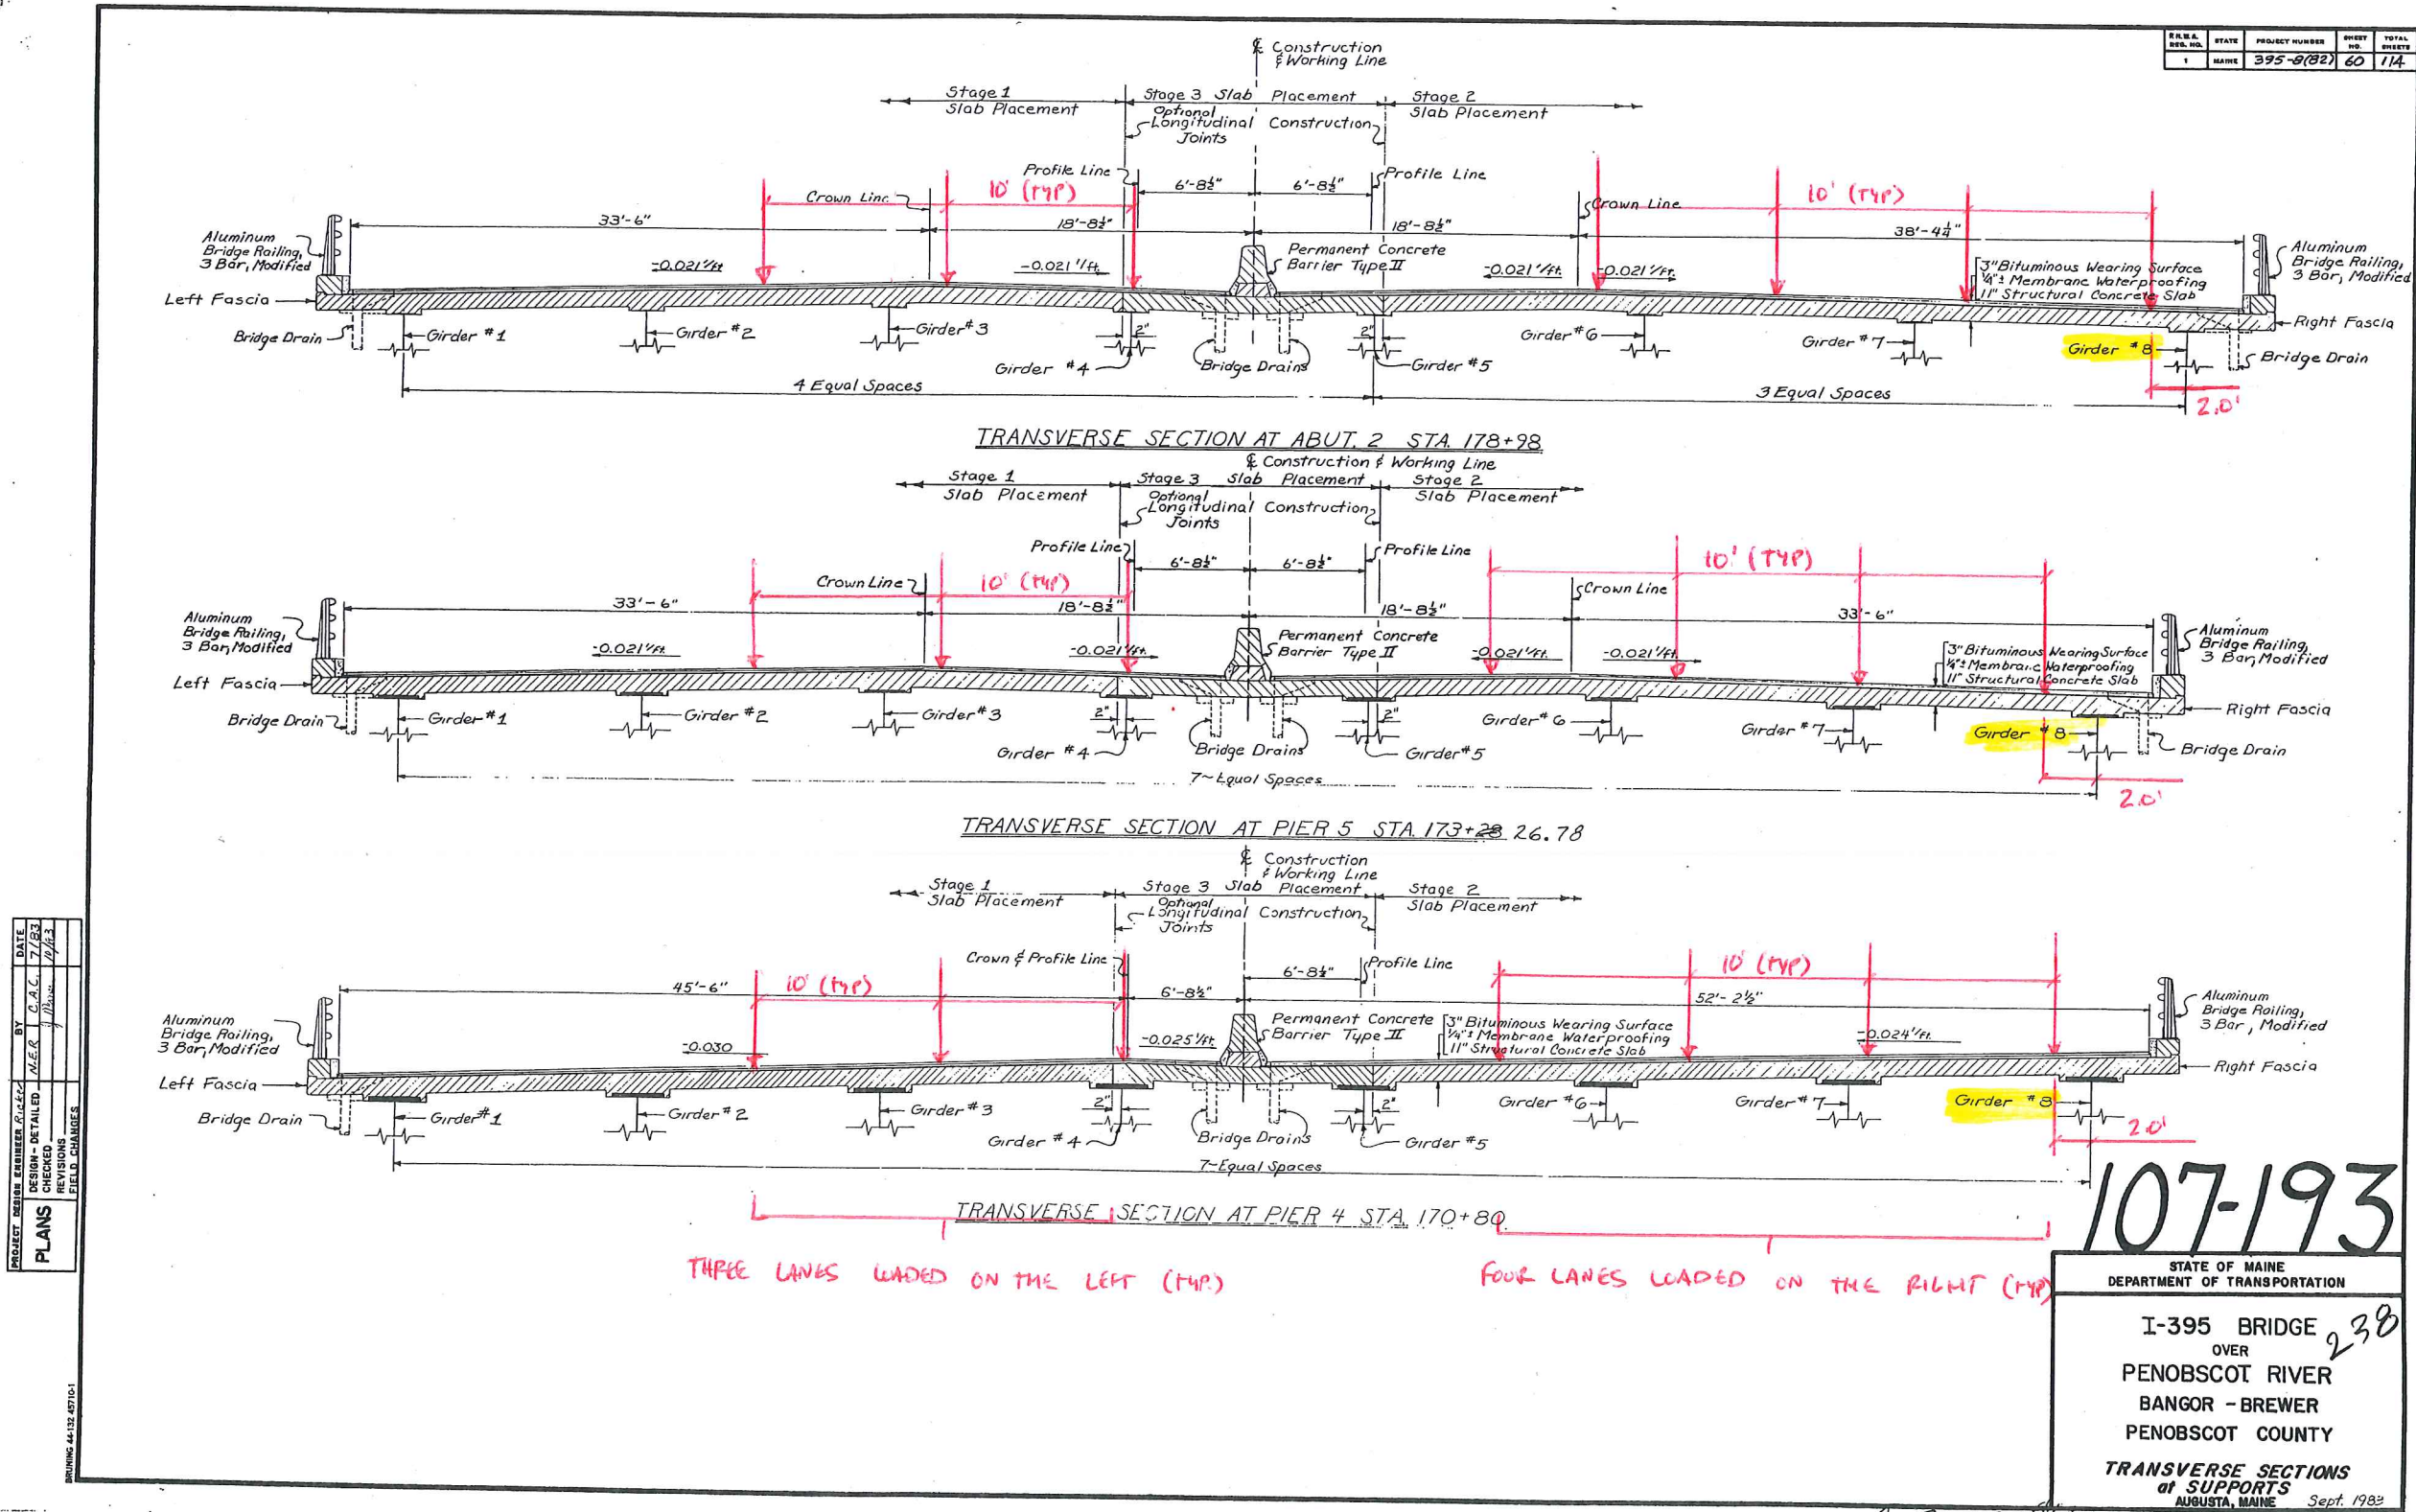 F.H.W.A. REG. NO. STATE PROJECT NUMBER SHEET NO. TOTAL SHEETS
1 MAINE 395-8(82) 60 114
℄ Construction
& Working Line
Stage 1
Slab Placement
Stage 3 Slab Placement
Stage 2
Slab Placement
Optional
Longitudinal Construction
Joints
Profile Line
6'-8½"
6'-8½"
Profile Line
Crown Line
10' (TYP)
10' (TYP)
Crown Line
33'-6"
18'-8½"
18'-8½"
38'-4¼"
Aluminum
Bridge Railing,
3 Bar, Modified
-0.021'/ft.
-0.021'/ft.
Permanent Concrete
Barrier Type II
-0.021'/ft.
-0.021'/ft.
3" Bituminous Wearing Surface
¼"± Membrane Waterproofing
11" Structural Concrete Slab
Aluminum
Bridge Railing,
3 Bar, Modified
Left Fascia
Right Fascia
Bridge Drain
Girder #1
Girder #2
Girder #3
2"
Girder #4
Bridge Drains
2"
Girder #5
Girder #6
Girder #7
Girder #8
Bridge Drain
4 Equal Spaces
3 Equal Spaces
2.0'
TRANSVERSE SECTION AT ABUT. 2 STA. 178+98
℄ Construction & Working Line
Stage 1
Slab Placement
Stage 3 Slab Placement
Stage 2
Slab Placement
Optional
Longitudinal Construction
Joints
Profile Line
6'-8½"
6'-8½"
Profile Line
Crown Line
10' (TYP)
10' (TYP)
Crown Line
33'-6"
18'-8½"
18'-8½"
33'-6"
Aluminum
Bridge Railing,
3 Bar, Modified
-0.021'/ft.
-0.021'/ft.
Permanent Concrete
Barrier Type II
-0.021'/ft.
-0.021'/ft.
3" Bituminous Wearing Surface
¼"± Membrane Waterproofing
11" Structural Concrete Slab
Aluminum
Bridge Railing,
3 Bar, Modified
Left Fascia
Right Fascia
Bridge Drain
Girder #1
Girder #2
Girder #3
2"
Girder #4
Bridge Drains
2"
Girder #5
Girder #6
Girder #7
Girder #8
Bridge Drain
7~Equal Spaces
2.0'
TRANSVERSE SECTION AT PIER 5 STA. 173+28 26.78
℄ Construction
& Working Line
Stage 1
Slab Placement
Stage 3 Slab Placement
Stage 2
Slab Placement
Optional
Longitudinal Construction
Joints
Crown & Profile Line
6'-8½"
Profile Line
45'-6"
10' (TYP)
6'-8½"
52'-2½"
10' (TYP)
Aluminum
Bridge Railing,
3 Bar, Modified
-0.030
-0.025'/ft.
Permanent Concrete
Barrier Type II
3" Bituminous Wearing Surface
¼"± Membrane Waterproofing
11" Structural Concrete Slab
-0.024'/ft.
Aluminum
Bridge Railing,
3 Bar, Modified
Left Fascia
Right Fascia
Bridge Drain
Girder #1
Girder #2
Girder #3
2"
Girder #4
Bridge Drains
2"
Girder #5
Girder #6
Girder #7
Girder #8
7~Equal Spaces
2.0'
TRANSVERSE SECTION AT PIER 4 STA. 170+80
THREE LANES LOADED ON THE LEFT (TYP.)
FOUR LANES LOADED ON THE RIGHT (TYP)
107-193
STATE OF MAINE
DEPARTMENT OF TRANSPORTATION
I-395 BRIDGE
238
OVER
PENOBSCOT RIVER
BANGOR - BREWER
PENOBSCOT COUNTY
TRANSVERSE SECTIONS
at SUPPORTS
AUGUSTA, MAINE Sept. 1983
PROJECT DESIGN ENGINEER Ricker BY DATE
PLANS
DESIGN - DETAILED N.E.R. C.A.C. 7/83
CHECKED
REVISIONS
FIELD CHANGES
BRUNING 44-132 45710-1